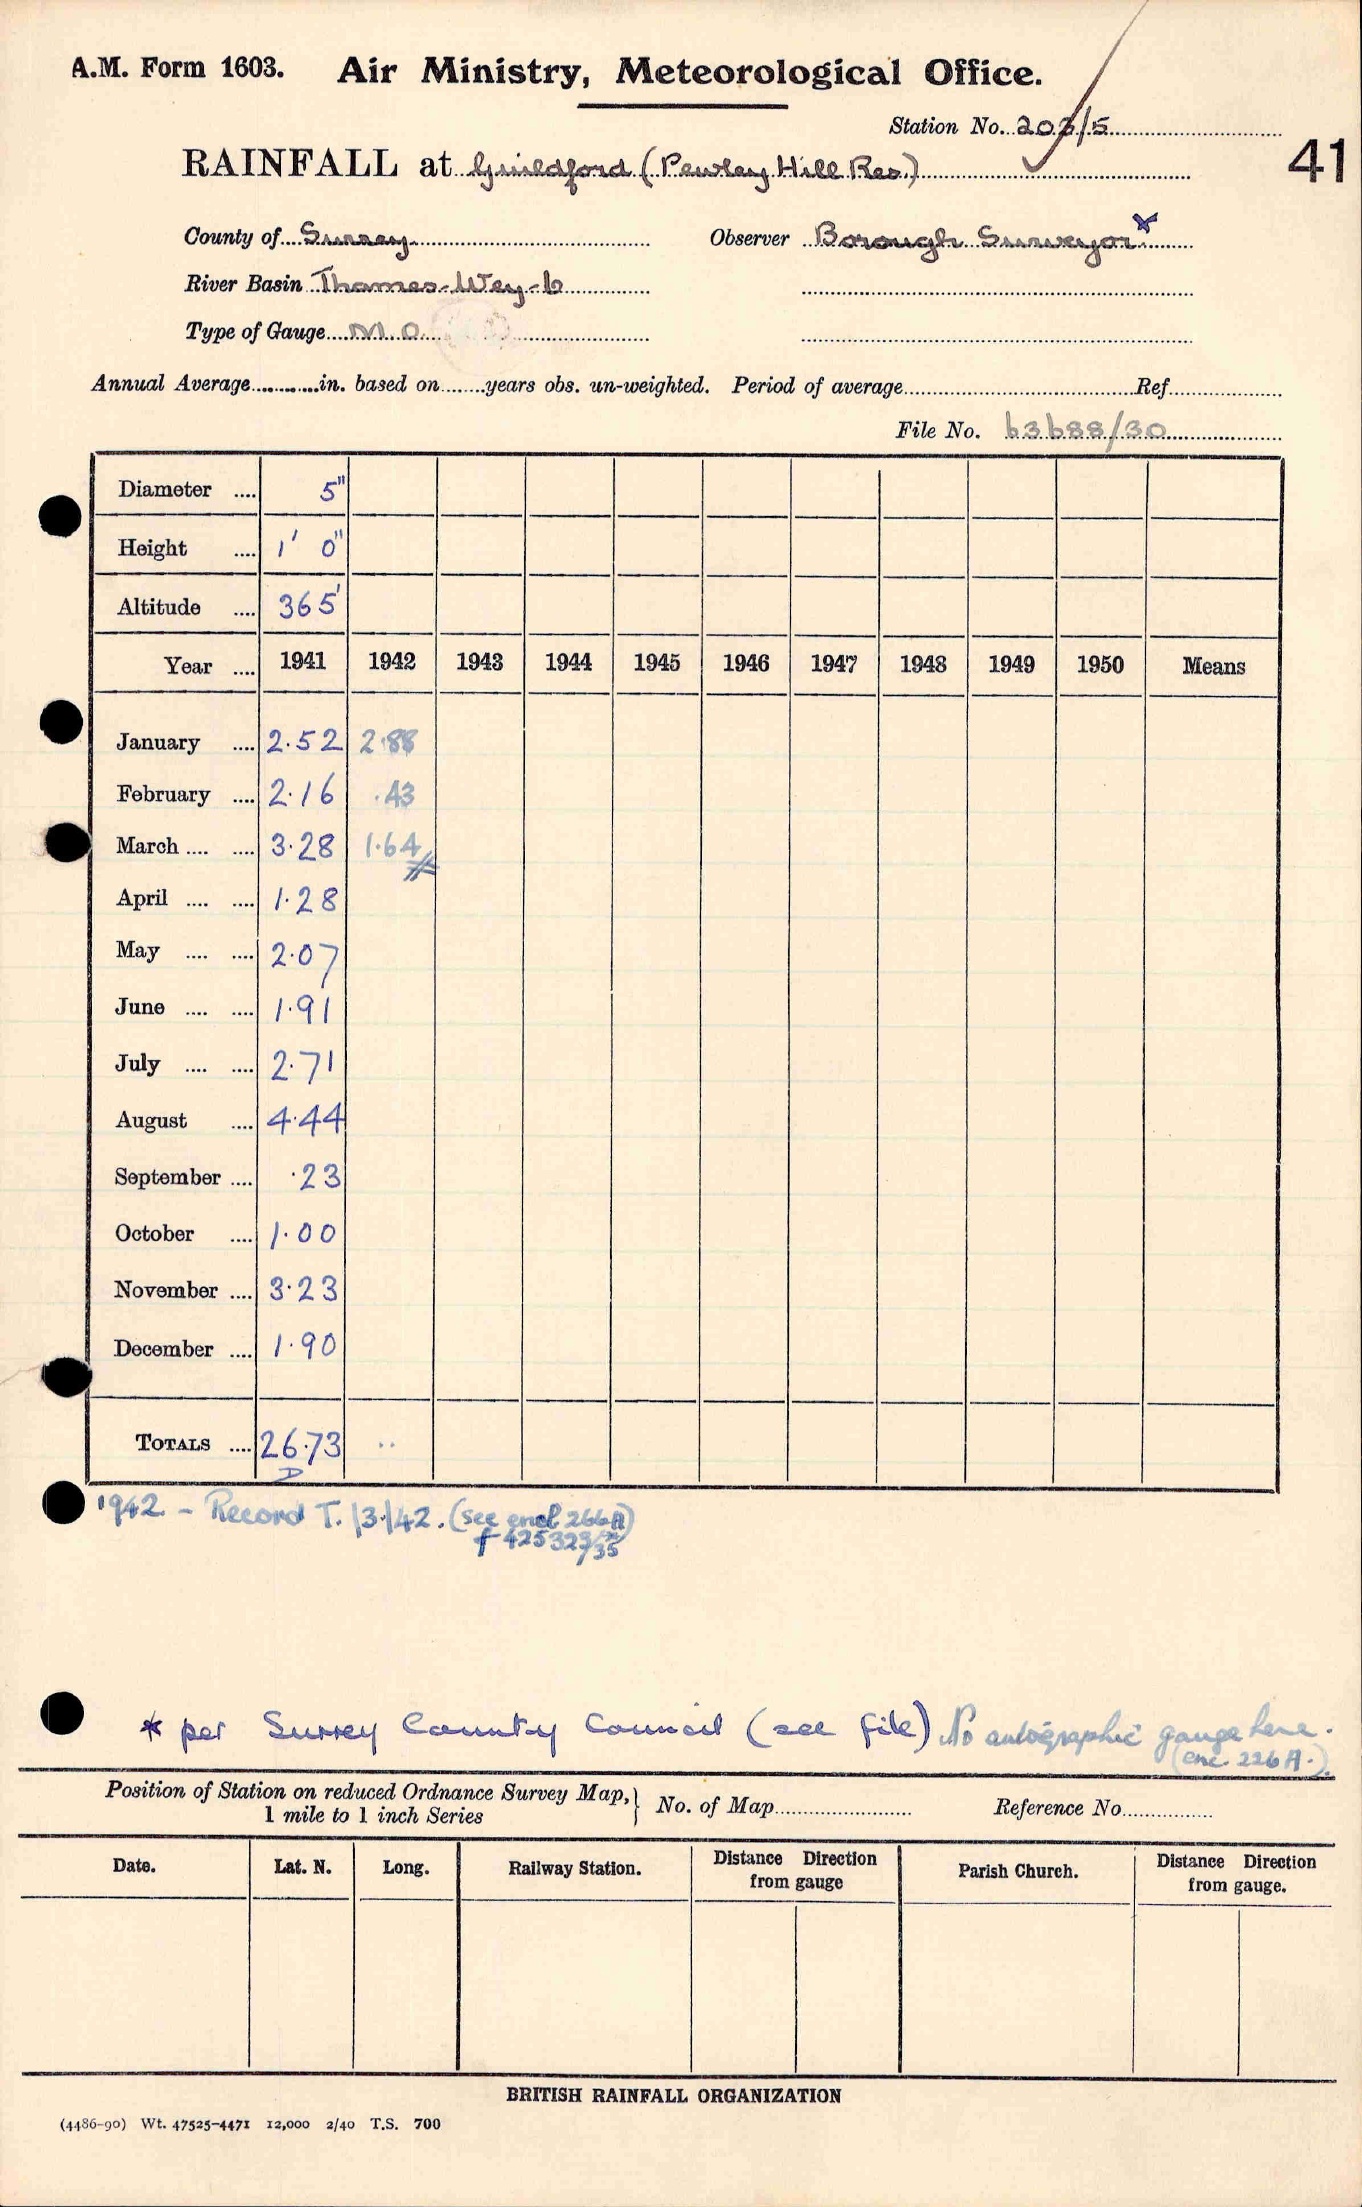 A.M. Form 1603. Air Ministry, Meteorological Office.
Station No. 203/5
41
RAINFALL at Guildford (Pewley Hill Res.)
County of Surrey Observer Borough Surveyor *
River Basin Thames-Wey-b
Type of Gauge M.O.
Annual Average in. based on years obs. un-weighted. Period of average Ref.
File No. 63688/30
Diameter .... 5"
Height .... 1' 0"
Altitude .... 365'
Year .... 1941 1942 1943 1944 1945 1946 1947 1948 1949 1950 Means
January .... 2.52 2.88
February .... 2.16 .43
March .... .... 3.28 1.64
April .... .... 1.28
May .... .... 2.07
June .... .... 1.91
July .... .... 2.71
August .... 4.44
September .... .23
October .... 1.00
November .... 3.23
December .... 1.90
TOTALS .... 26.73 ..
D
1942 - Record T. /3/42. (see encl 266A)
f 425323/35
* per Surrey County Council (see file) No autographic gauge here.
(enc 226A.).
Position of Station on reduced Ordnance Survey Map,} No. of Map Reference No.
1 mile to 1 inch Series
Date. Lat. N. Long. Railway Station. Distance Direction from gauge Parish Church. Distance Direction from gauge.
BRITISH RAINFALL ORGANIZATION
(4486-90) Wt. 47525-4471 12,000 2/40 T.S. 700